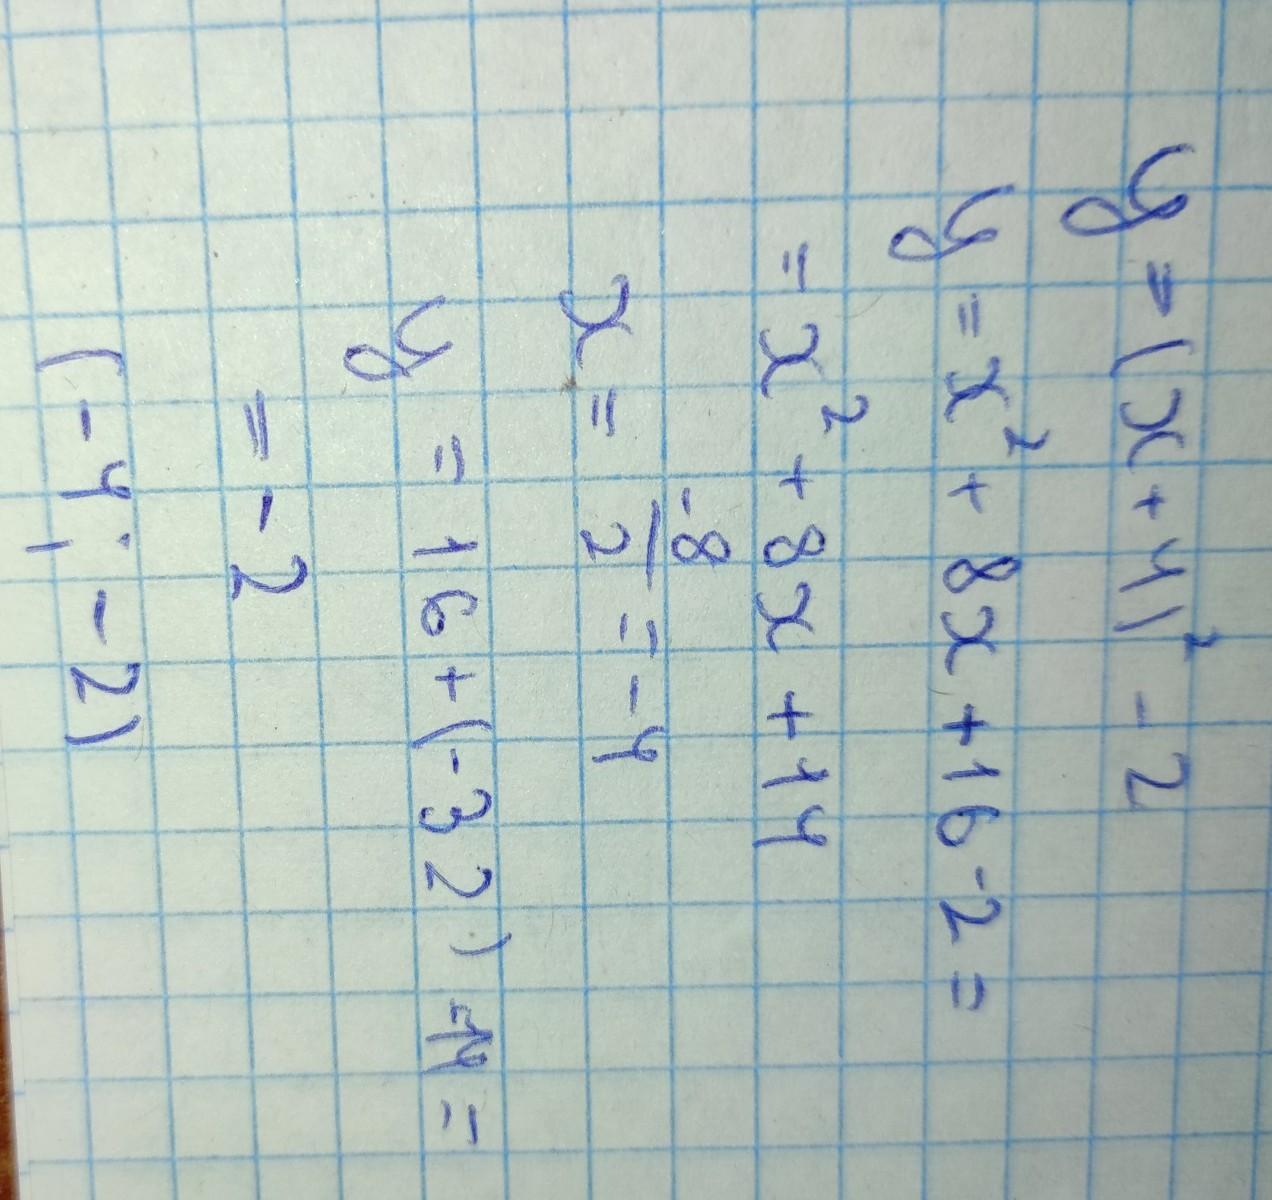 y = (x + 4)² - 2
y = x² + 8x + 16 - 2 =
= x² + 8x + 14
x = -8/2 = -4
y = 16 + (-32) -14 =
= -2
(-4; -2)